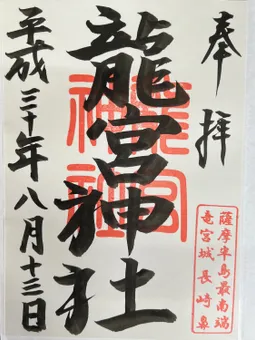 奉拝
龍宮神社
龍宮神社
薩摩半島最南端
竜宮城 長崎鼻
平成三十年八月十三日